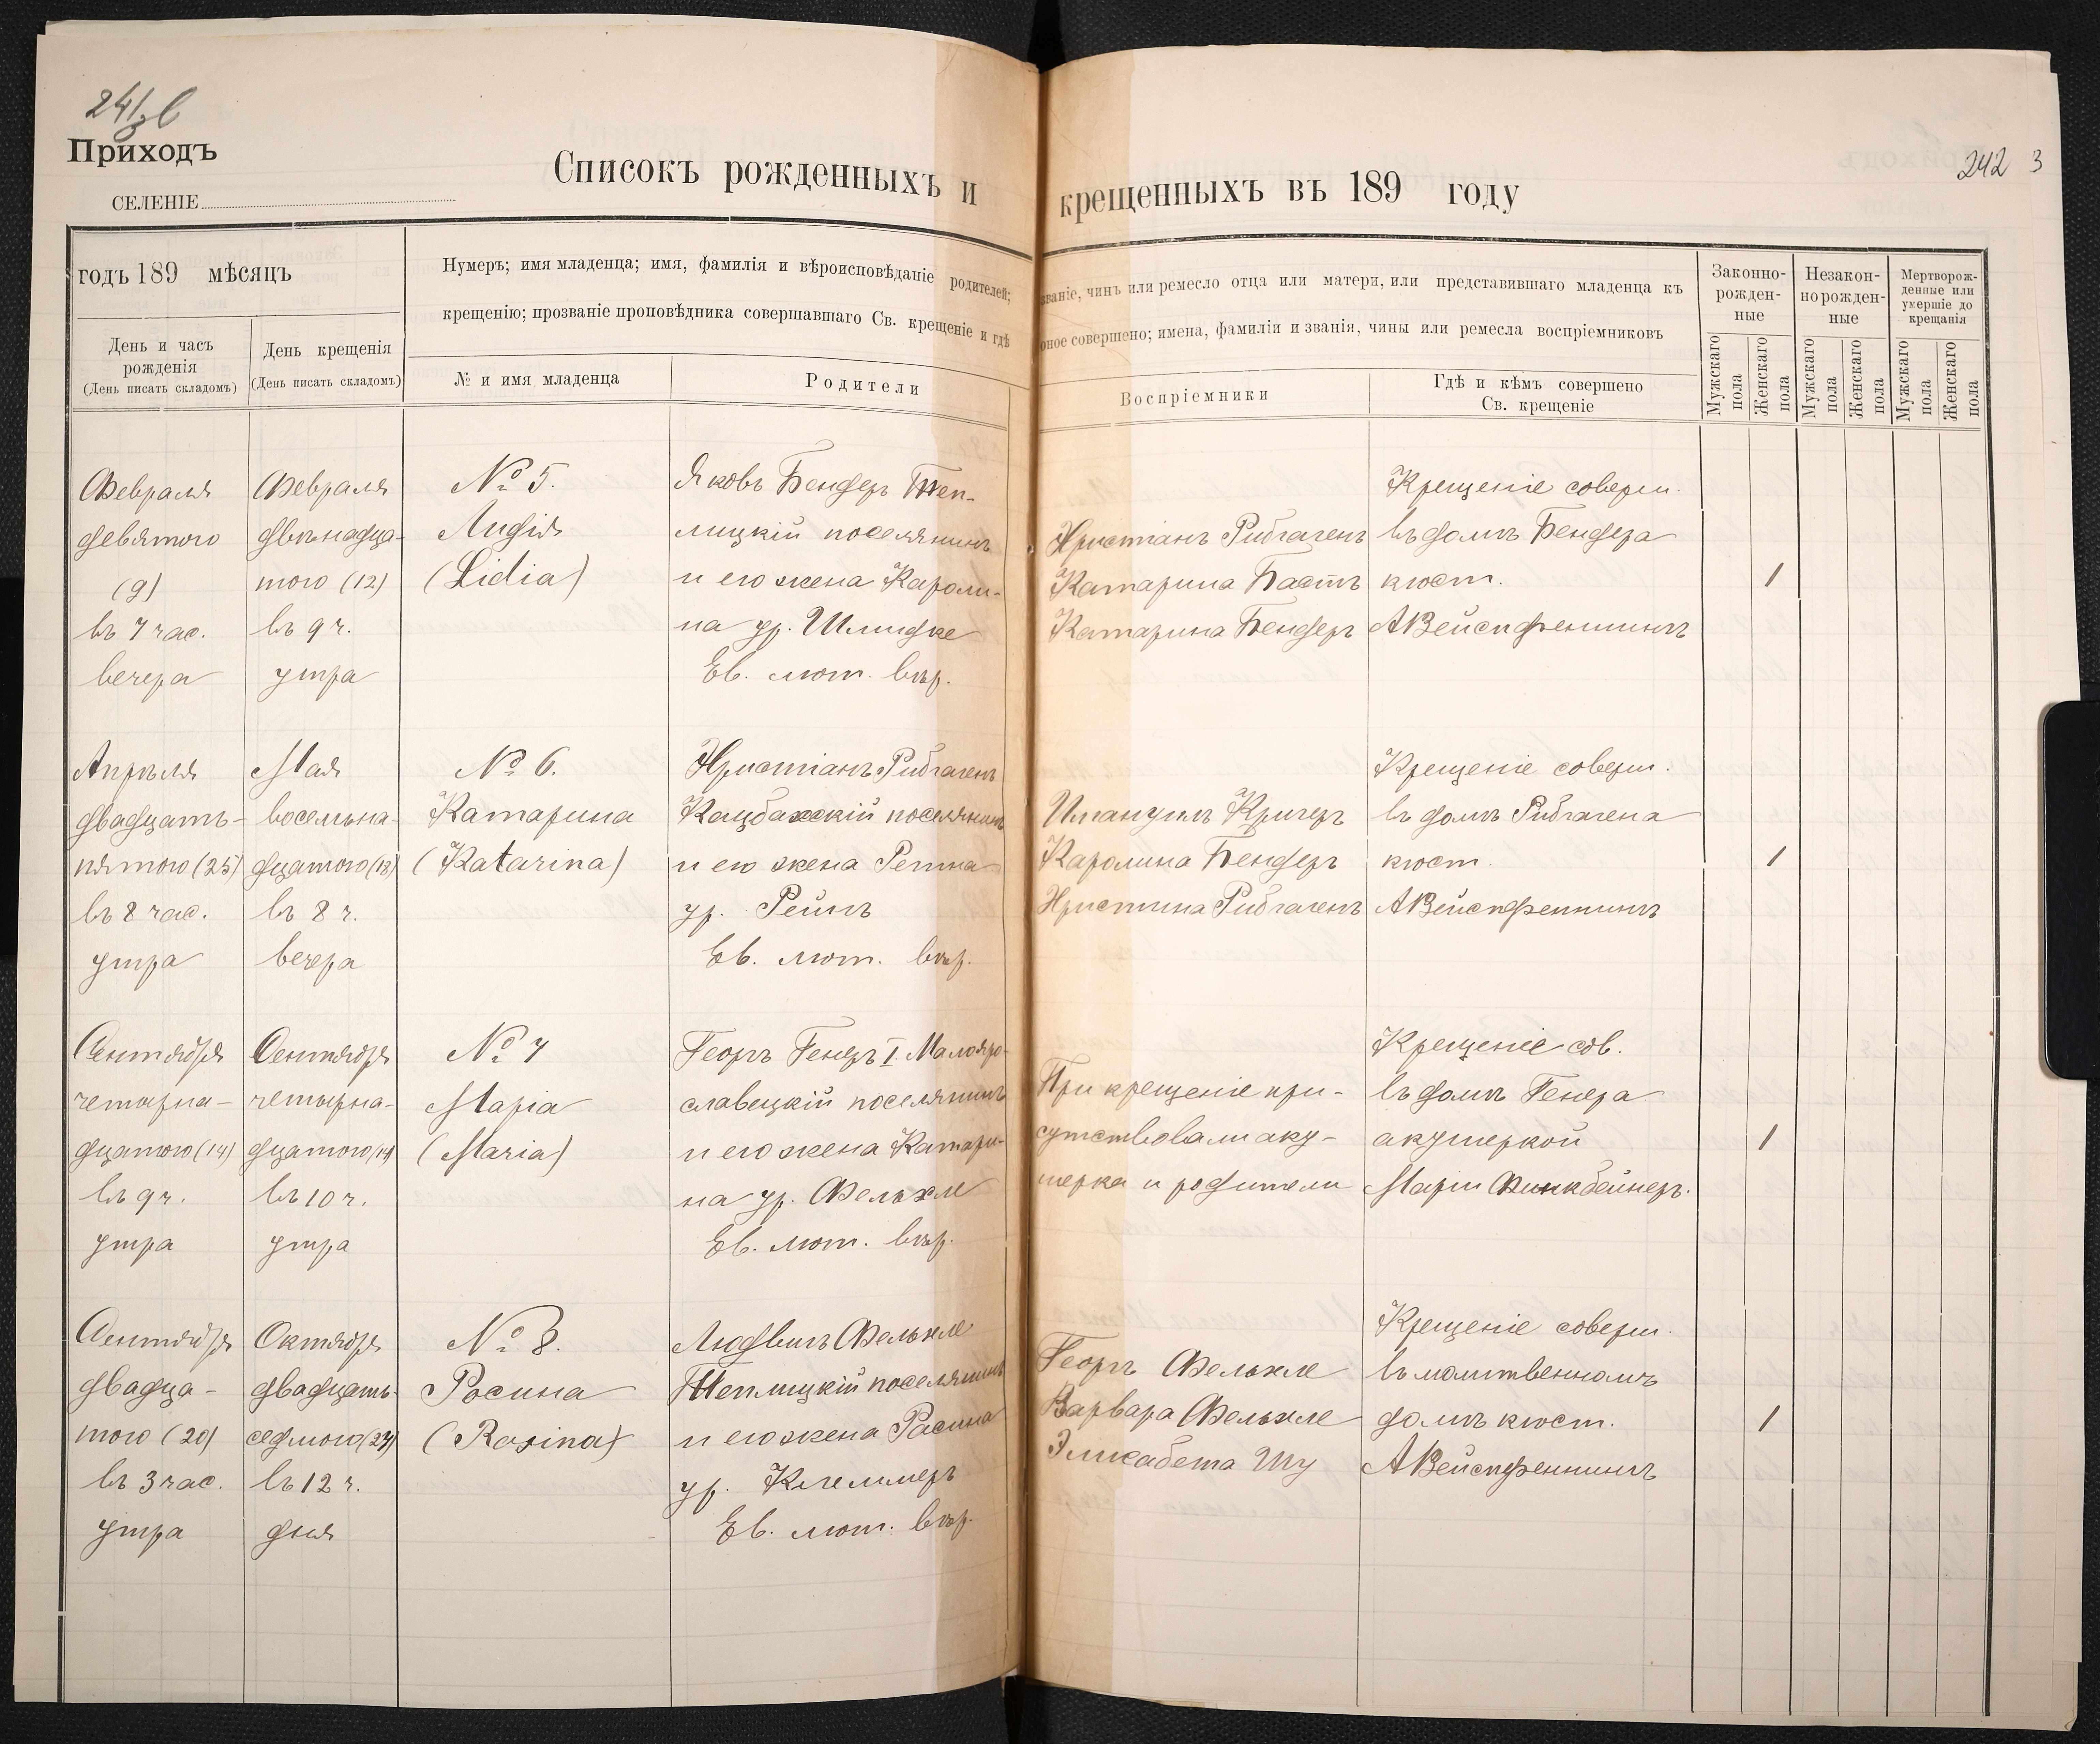 241 3 b
Приходъ
СЕЛЕНІЕ
Списокъ рожденныхъ и крещенныхъ въ 189 году
242 3
годъ 189 мѣсяцъ
День и часъ рожденія
(День писать складомъ)
День крещенія
(День писать складомъ)
Нумеръ; имя младенца; имя, фамилія и вѣроисповѣданіе родителей; званіе, чинъ или ремесло отца или матери, или представившаго младенца къ
крещенію; прозваніе проповѣдника совершавшаго Св. крещеніе и гдѣ оное совершено; имена, фамиліи и званія, чины или ремесла воспріемниковъ
№ и имя младенца
Родители
Воспріемники
Гдѣ и кѣмъ совершено
Св. крещеніе
Законно-
рожден-
ные
Незакон-
норожден-
ные
Мертворож-
денные или
умершіе до
крещанія
Мужскаго пола
Женскаго пола
Мужскаго пола
Женскаго пола
Мужскаго пола
Женскаго пола
Февраля
девятого
(9)
въ 7 час.
вечера
Февраля
двѣнадца-
того (12)
въ 9 ч.
утра
№ 5.
Лидія
(Lidia)
Яковъ Бендеръ Теп-
лицкій поселянинъ
и его жена Кароли-
на ур. Шлидке
Ев. лют. вѣр.
Христіанъ Рибгагенъ
Катарина Бастъ
Катарина Бендеръ
Крещеніе соверш.
въ домѣ Бендера
кюст.
А Вейспфеннингъ
1
Апрѣля
двадцать-
пятого (25)
въ 8 час.
утра
Мая
восемьна-
дцатого (18)
въ 8 ч.
вечера
№ 6.
Катарина
(Katarina)
Христіанъ Рибгагенъ
Кацбахскій поселянинъ
и его жена Регина
ур. Реймъ
Ев. лют. вѣр.
Имануилъ Кригеръ
Каролина Бендеръ
Христина Рибгагенъ
Крещеніе соверш.
въ домѣ Рибгагена
кюст.
А Вейспфеннингъ
1
Сентября
четырна-
дцатого (14)
въ 9 ч.
утра
Сентября
четырна-
дцатого (14)
въ 10 ч.
утра
№ 7
Марія
(Maria)
Георгъ Генеръ I. Малояро-
славецкій поселянинъ
и его жена Катари-
на ур. Фелькле
Ев. лют. вѣр.
При крещеніе при-
сутствовали аку-
шерка и родители
Крещеніе сов.
въ домѣ Генера
акушеркой
Маріи Финкбейнеръ.
1
Сентября
двадца-
того (20)
въ 3 час.
утра
Октября
двадцать
седмого (27)
въ 12 ч.
дня
№ 8.
Росина
(Rosina)
Людвигъ Фелькле
Теплицкій поселянинъ
и его жена Расина
ур. Клеммеръ
Ев. лют. вѣр.
Георгъ Фелькле
Варвара Фелькле
Эликабета Шу
Крещеніе соверш.
въ молитвенномъ
домѣ кюст.
А Вейспфеннингъ
1